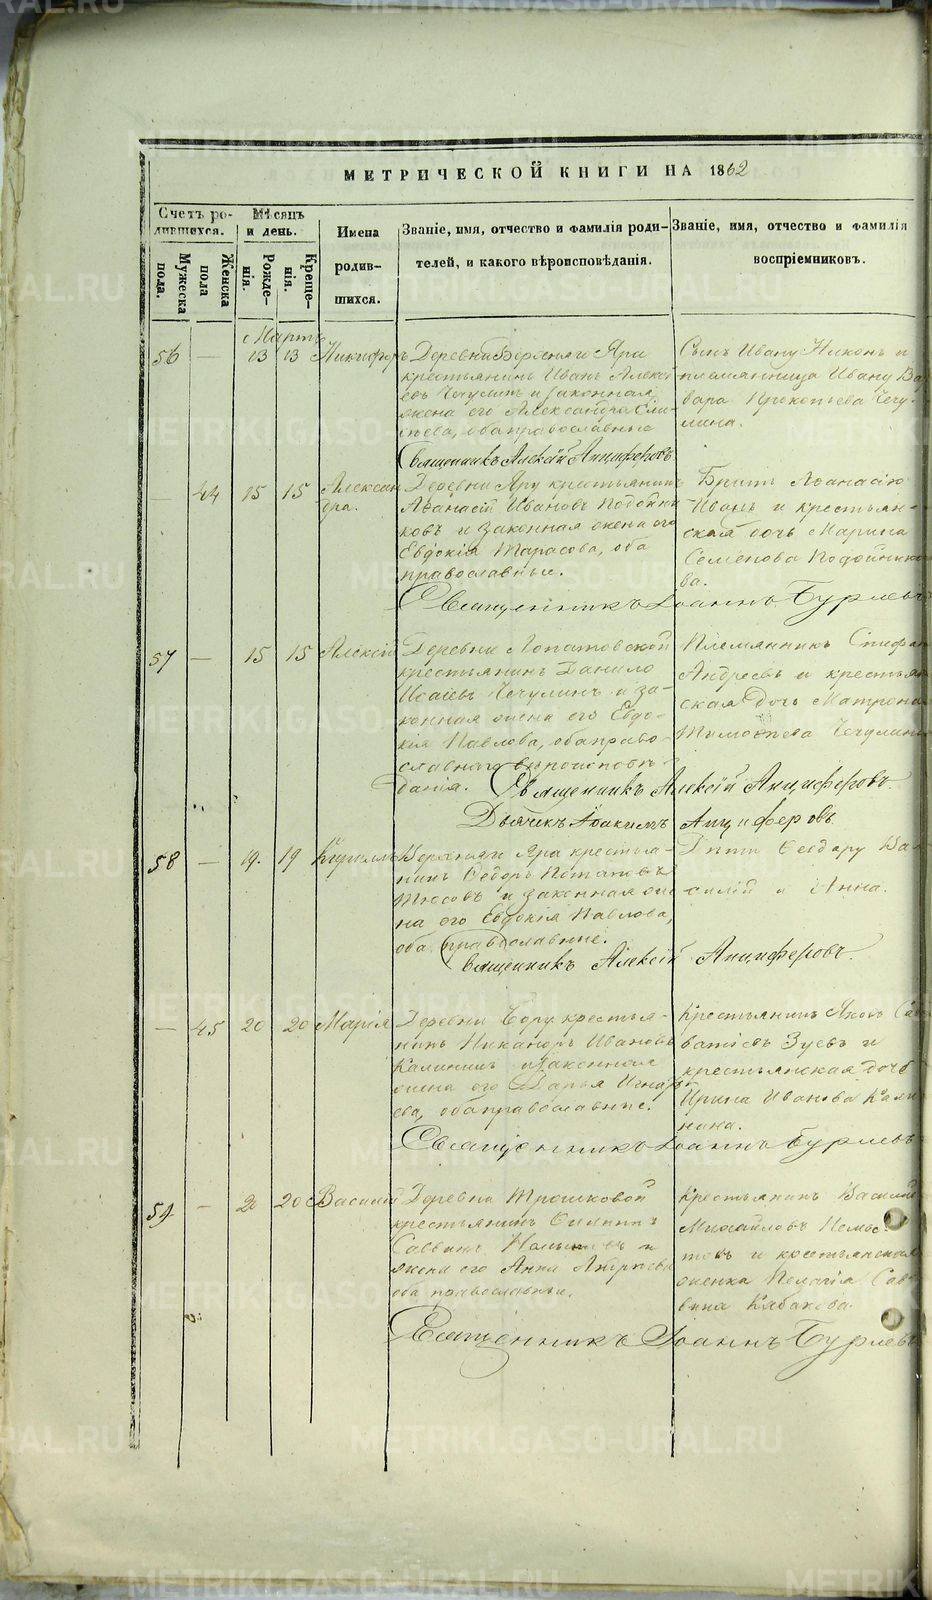 МЕТРИЧЕСКОЙ КНИГИ НА 1862
Счетъ ро-
дившихся.
Мѣсяцъ
и день.
Имена
родив-
шихся.
Званіе, имя, отчество и фамилія роди-
телей, и какого вѣроисповѣданія.
Званіе, имя, отчество и фамилія
воспріемниковъ.
Мужеска
пола.
Женска
пола
Рожде-
нія.
Креще-
нія.
Мартъ
56 — 13 13 Никифоръ
Деревни Бережняго Яра
крестьянинъ Иванъ Алексѣ-
евъ Чечулинъ и законная
жена его Александра
оба православные
Священникъ Алексій Анциферовъ
Сынъ Ивану Никонъ и
племянница Ивану Вар-
вара Прокопьева Чечу-
лина.
— 44 15 15 Алексан
дра.
Деревни Яру крестьянинъ
Аѳанасій Ивановъ Подойни-
ковъ и законная жена его
Евдокія Тарасова, оба
православные.
Священникъ Іоаннъ Буревъ
Братъ Аѳанасію
Иванъ и крестьян-
ская дочь Марина
Семенова Подойнико
ва.
57 — 15 15 Алексій
Деревни Лопатовской
крестьянинъ Данило
Исаевъ Чечулинъ и за-
конная жена его Евдо-
кія Павлова, оба право-
славнаго вѣроисповѣ-
данія.
Священникъ Алексій Анциферовъ.
Дьячекъ Іоакимъ Анциферовъ.
Племянникъ
Андреевъ и крестьян
ская дочь Матрона
Тимоѳеева Чечулина
58 — 19. 19 Кириллъ
Бережняго Яра крестья-
нинъ Ѳедоръ Потаповъ
Тюсовъ и законная же
на его Евдокія Павлова,
оба православные.
Священникъ Алексій Анциферовъ.
Дѣти Ѳеодору Ва-
силій и Анна.
— 45 20 20 Марія
Деревни Бору крестья-
нинъ Никаноръ Ивановъ
Калининъ и законная
жена его Дарья
ева, оба православные.
Священникъ Іоаннъ Буревъ
Крестьянинъ Яковъ Сав
ватіевъ Зуевъ и
крестьянская дочь
Ирина Иванова Кали
нина.
59 — 20 20 Василій
Деревни Трошковой
крестьянинъ Филиппъ
Саввинъ и
жена его Анна Андреева
оба православные.
Священникъ Іоаннъ Буревъ
Крестьянинъ Василій
Михайловъ
и крестьянская
женка Пелагія Сав-
вина Кабакова.
METRIKI.GASO-URAL.RU